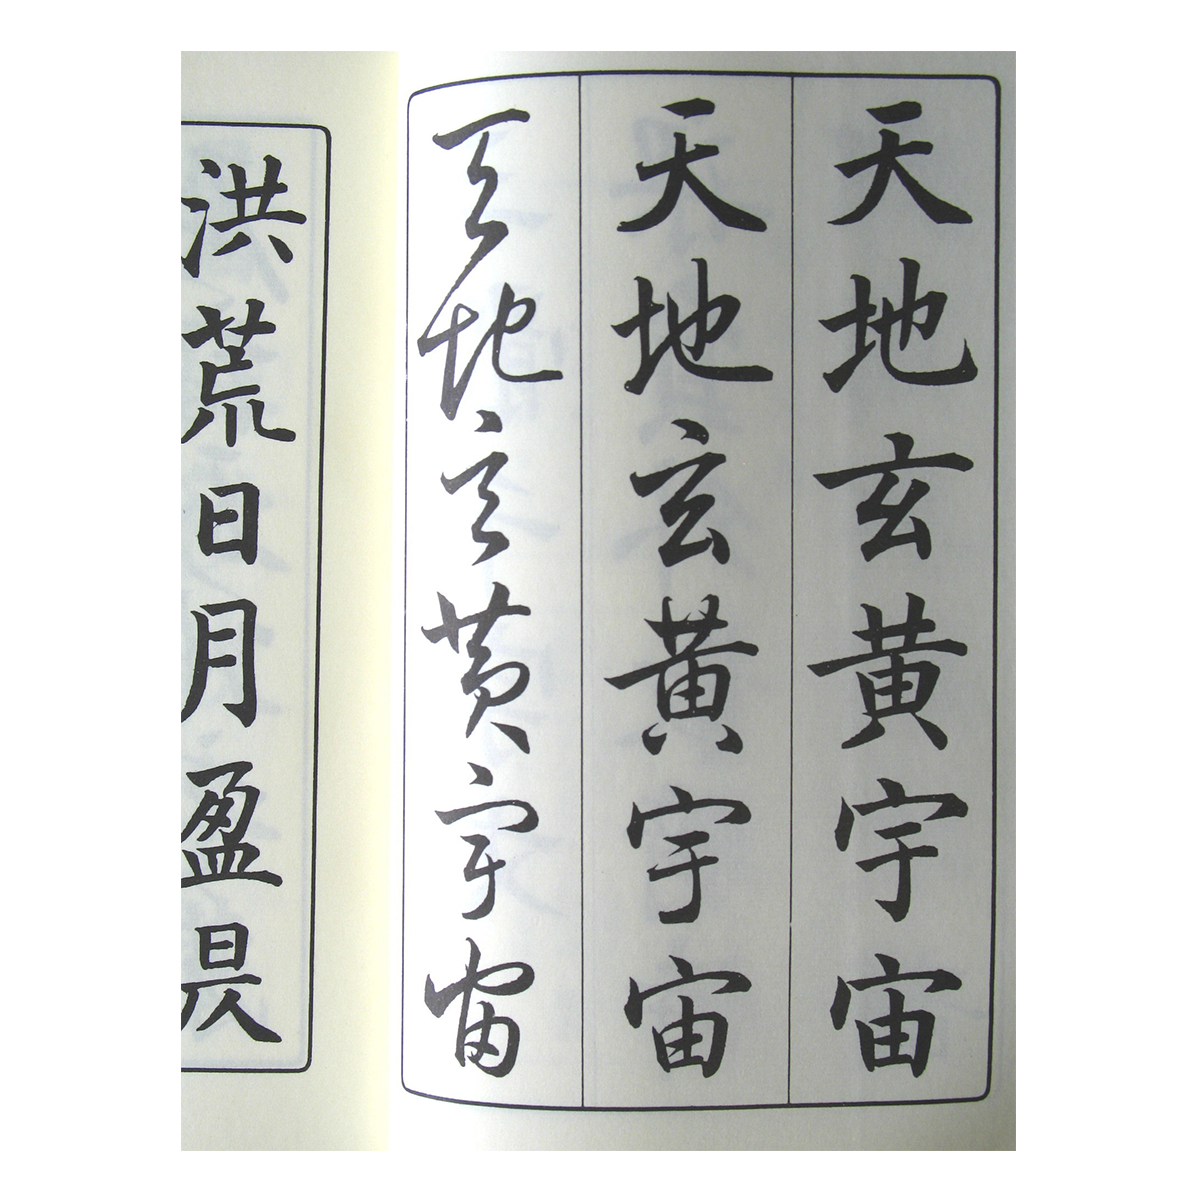 天地玄黄宇宙
天地玄黃宇宙
天地玄黄宇宙
洪荒日月盈昃